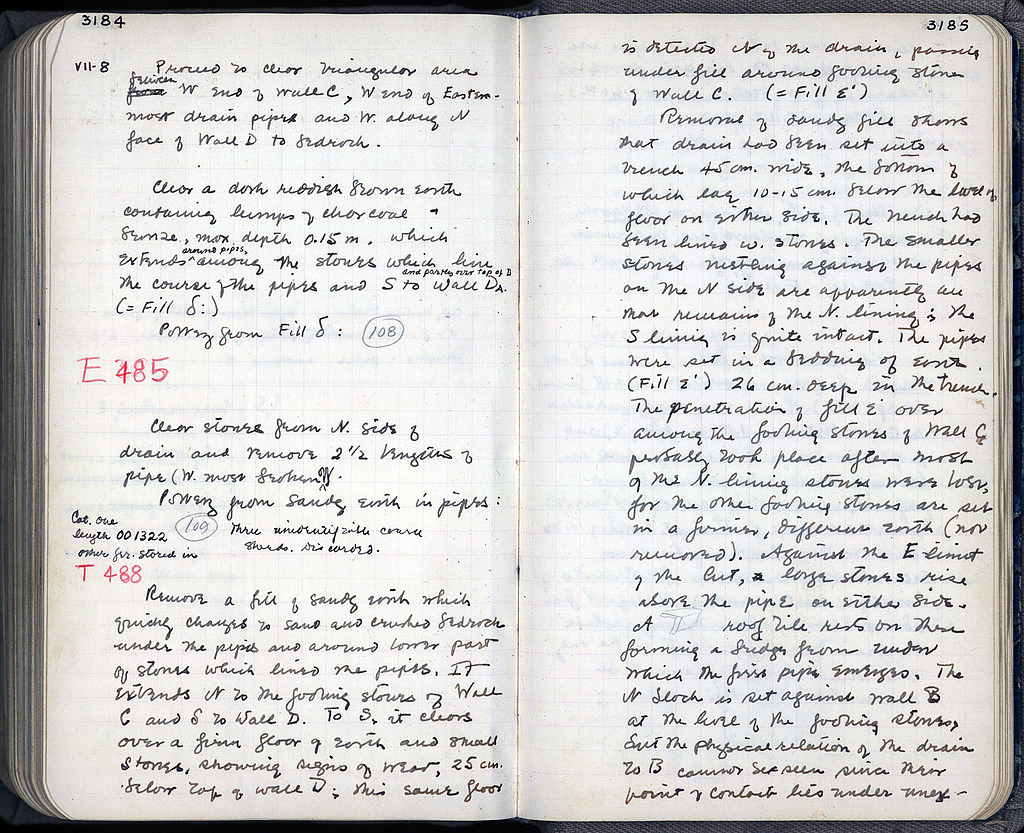 3184
VII-8 Proceed to clear triangular area
between
from W end of Wall C, W end of Eastern-
most drain pipes and W. along N
face of Wall D to bedrock.
Clear a dark reddish brown earth
containing lumps of charcoal
bronze, max depth 0.15 m. which
around pipes,
extends among the stones which line
and partly over top of D
the course of the pipes and S to Wall D.
(= Fill δ:)
Pottery from Fill δ: 108
E 485
Clear stones from N. side of
drain and remove 2 1/2 lengths of
pipe (W. most broken).
Pottery from sandy earth in pipes:
Cat. one
length 001322
other fr. stored in
109 Three unidentifiable coarse
sherds. Discarded.
T 488
Remove a fill of sandy earth which
quickly changes to sand and crushed bedrock
under the pipes and around lower part
of stones which lined the pipes. It
extends N to the footing stones of Wall
C and S to Wall D. To S, it clears
over a firm floor of earth and small
stones, showing signs of wear, 25 cm.
below top of wall D; this same floor
3185
is detected N of the drain, passing
under fill around footing stone
of Wall C. (= Fill ε')
Removal of sandy fill shows
that drain had been set into a
trench 45 cm. wide, the bottom of
which lay 10-15 cm. below the level of
floor on either side. The trench had
been lined w. stones. The smaller
stones nestling against the pipes
on the N side are apparently all
that remains of the N. lining; the
S lining is quite intact. The pipes
were set in a bedding of earth
(Fill ε') 26 cm. deep in the trench.
The penetration of fill ε' over
among the footing stones of Wall C
probably took place after most
of the N. lining stones were lost,
for the other footing stones are set
in a firmer, different earth (not
removed). Against the E limit
of the Cut, large stones rise
above the pipe on either side.
A roof tile rests on these
forming a bridge from under
which the first pipe emerges. The
N block is set against wall B
at the level of the footing stones,
but the physical relation of the drain
to B cannot be seen since their
point of contact lies under unex-